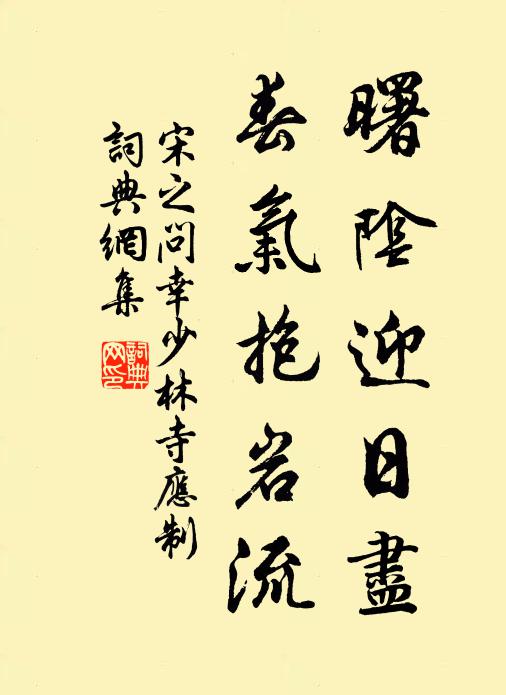 曙陰迎日盡
春氣抱岩流
宋之问幸少林寺應制
詞典網集
詞典网印